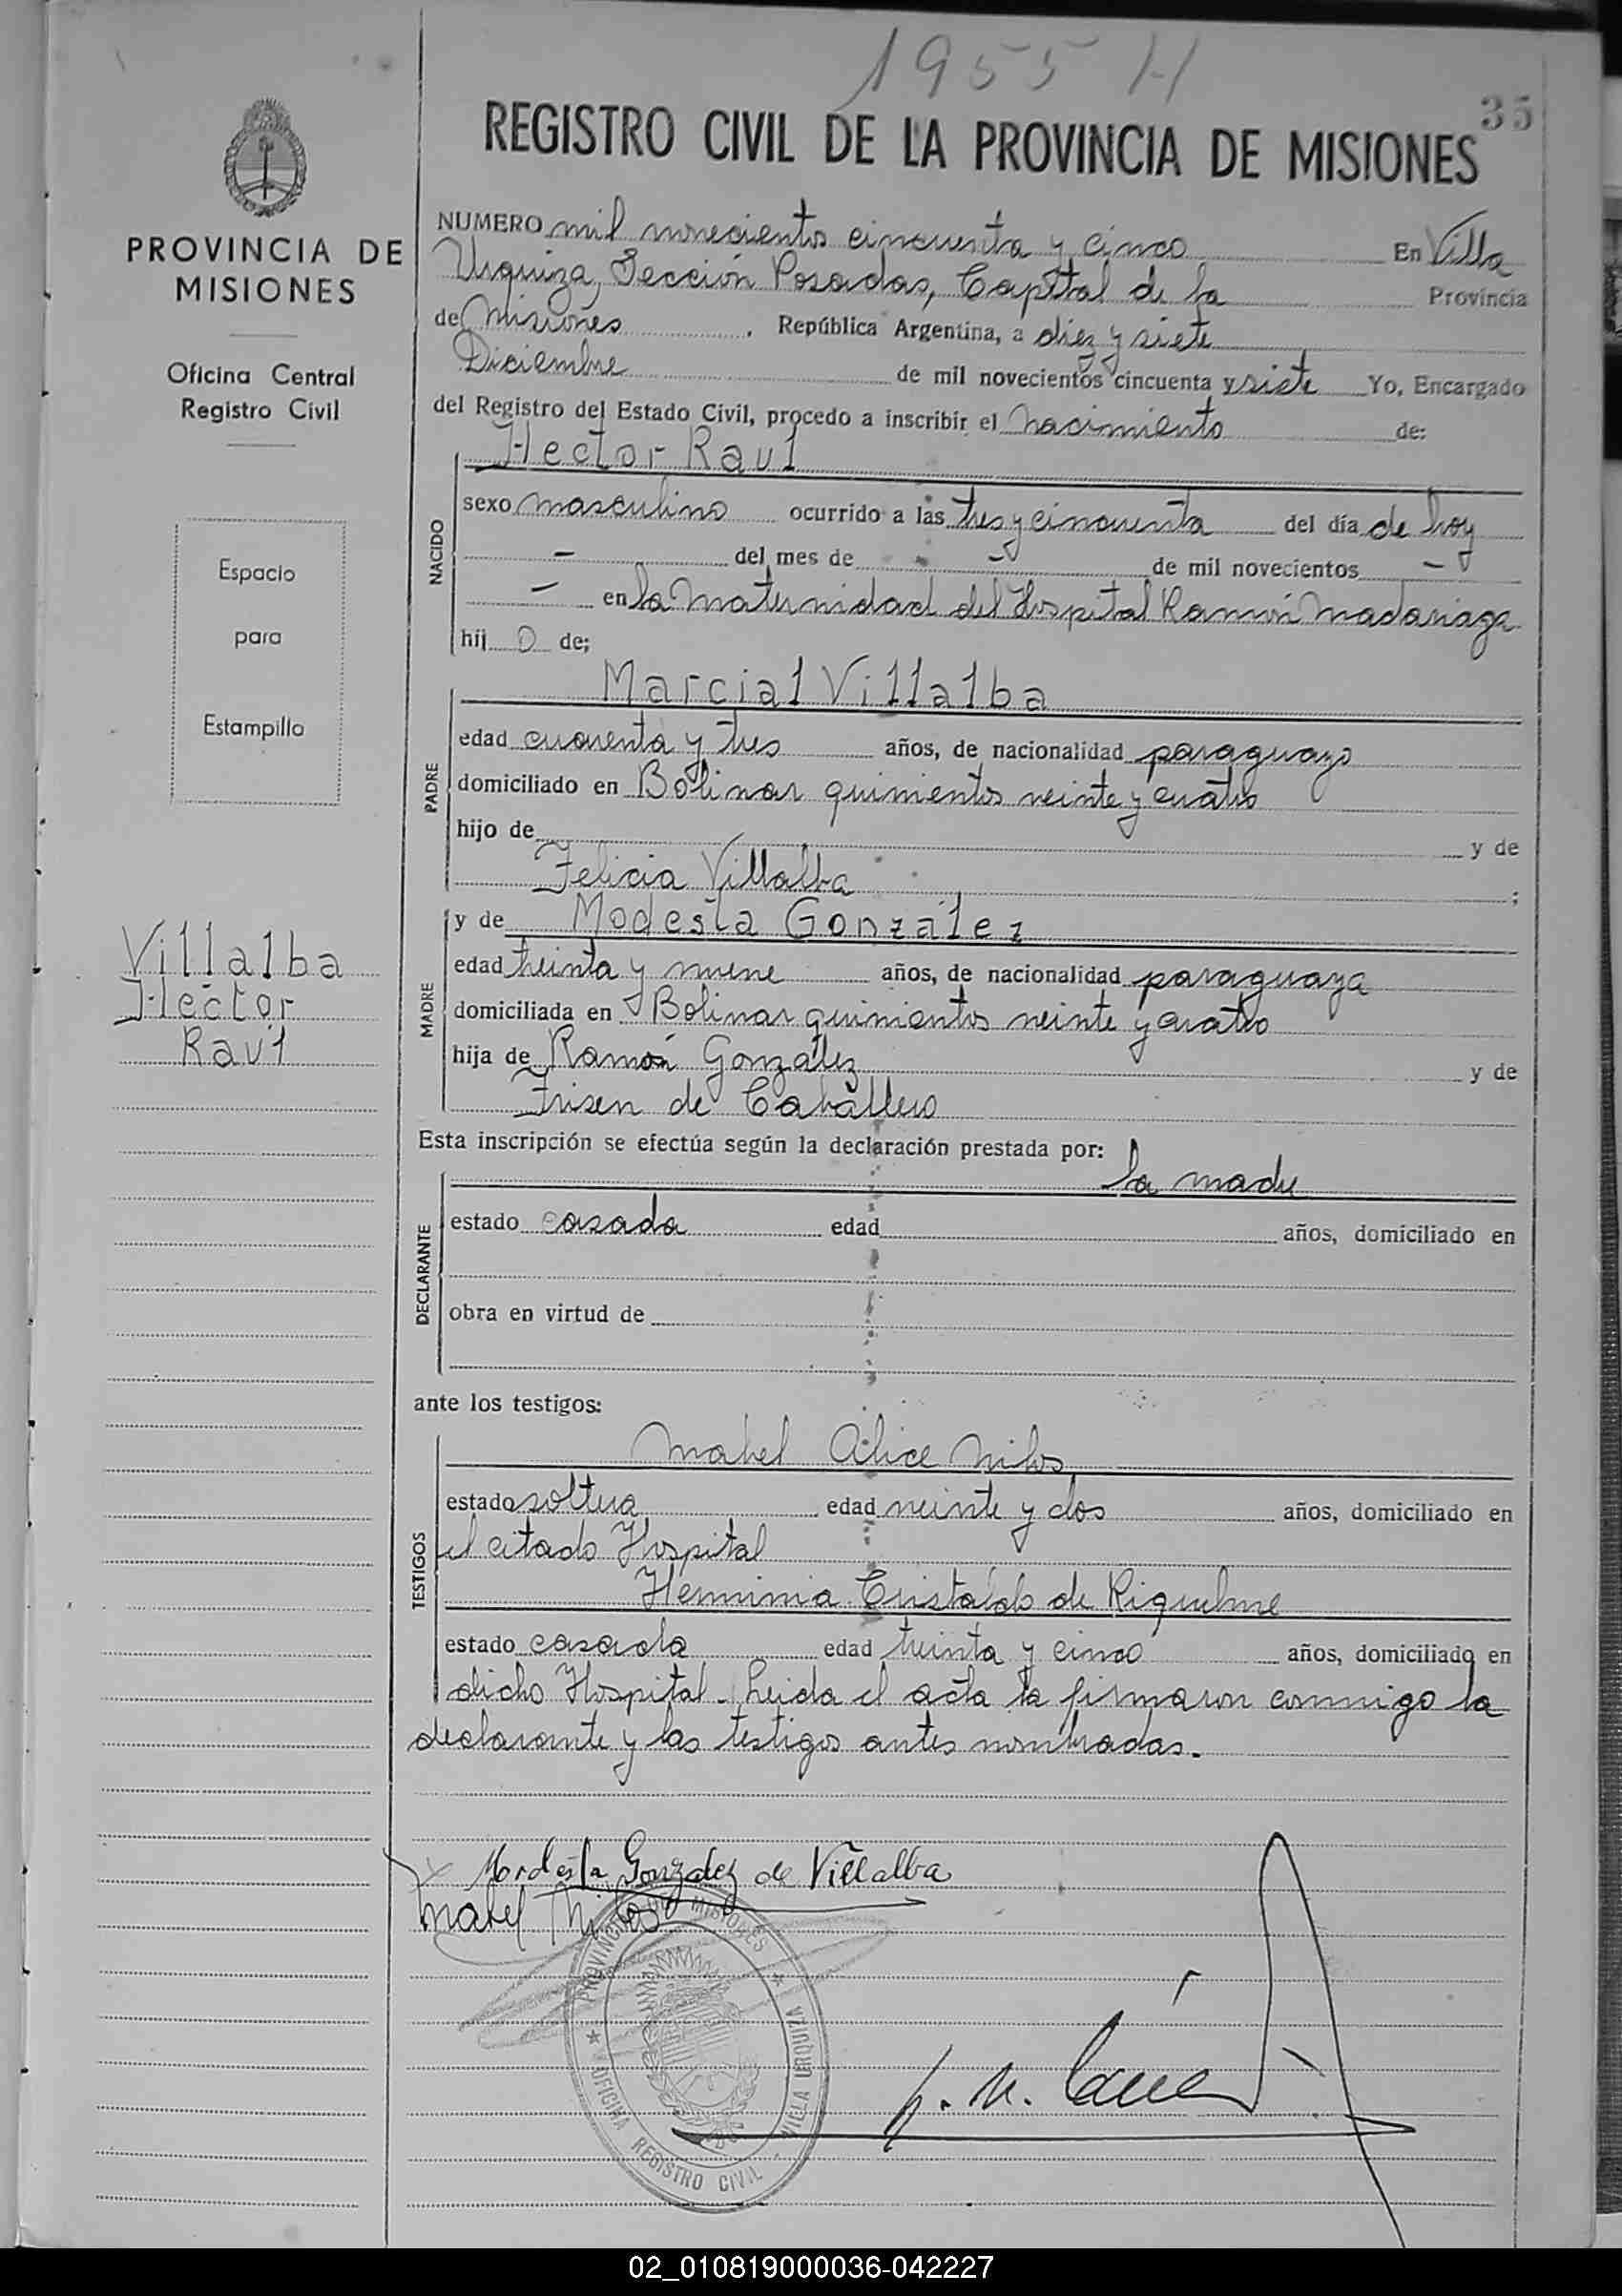 1955 H
35
REGISTRO CIVIL DE LA PROVINCIA DE MISIONES
PROVINCIA DE
MISIONES
Oficina Central
Registro Civil
Espacio
para
Estampillo
Villalba
Hector
Raul
NUMERO mil novecientos cincuenta y cinco En Villa
Urquiza, Sección Posadas, Capital de la Provincia
de Misiones, República Argentina, a diez y siete
Diciembre de mil novecientos cincuenta y siete Yo, Encargado
del Registro del Estado Civil, procedo a inscribir el nacimiento de:
Hector Raul
NACIDO
sexo masculino ocurrido a las tres y cincuenta del día de hoy
- del mes de - de mil novecientos -
- en la Maternidad del Hospital Ramón Madariaga
hij o de;
PADRE
Marcial Villalba
edad cuarenta y tres años, de nacionalidad paraguayo
domiciliado en Bolivar quinientos veinte y cuatro
hijo de y de
Felicia Villalba ;
MADRE
y de Modesta González
edad treinta y nueve años, de nacionalidad paraguaya
domiciliada en Bolivar quinientos veinte y cuatro
hija de Ramón González y de
de Caballero
Esta inscripción se efectúa según la declaración prestada por:
la madre
DECLARANTE
estado casada edad años, domiciliado en
obra en virtud de
ante los testigos:
TESTIGOS
Mabel Alice Milos
estado soltera edad veinte y dos años, domiciliado en
el citado Hospital
Herminia Cristaldo de Riquelme
estado casada edad treinta y cinco años, domiciliado en
dicho Hospital. Leida el acta la firmaron conmigo la
declarante y las testigos antes nombradas.
Modesta Gonzalez de Villalba
Mabel Milos
PROVINCIA DE MISIONES
OFICINA REGISTRO CIVIL - VILLA URQUIZA
02_010819000036-042227